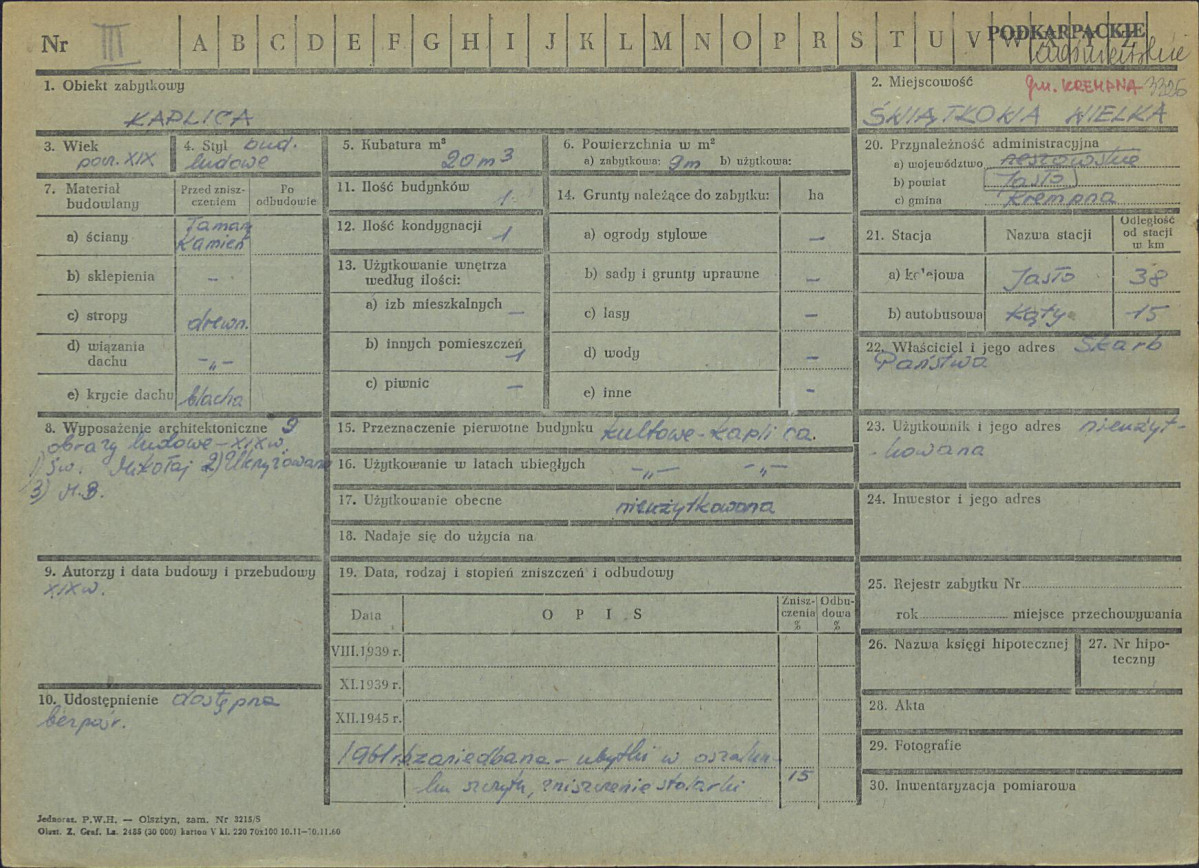 Nr III A B C D E F G H I J K L M N O P R S T U V W X Y Z
PODKARPACKIE
1. Obiekt zabytkowy
KAPLICA
2. Miejscowość gm. KREMPNA 3326
ŚWIĄTKOWA WIELKA
3. Wiek
pocz. XIX
4. Styl bud.
ludowe
5. Kubatura m³
20 m3
6. Powierzchnia w m²
a) zabytkowa: 9m b) użytkowa:
7. Materiał budowlany
Przed zniszczeniem
Po odbudowie
a) ściany
Kamień
b) sklepienia –
c) stropy drewn.
d) wiązania dachu –„–
e) krycie dachu blacha
11. Ilość budynków 1
12. Ilość kondygnacji 1
13. Użytkowanie wnętrza
według ilości:
a) izb mieszkalnych –
b) innych pomieszczeń 1
c) piwnic –
14. Grunty należące do zabytku: ha
a) ogrody stylowe –
b) sady i grunty uprawne –
c) lasy –
d) wody –
e) inne –
20. Przynależność administracyjna
a) województwo rzeszowskie
b) powiat Jasło
c) gmina Krempna
21. Stacja
Nazwa stacji
Odległość
od stacji
w km
a) kolejowa Jasło 38
b) autobusowa Kąty 15
22. Właściciel i jego adres Skarb
Państwa
8. Wyposażenie architektoniczne
obrazy ludowe – XIX w.
1) św. Mikołaj 2) Ukrzyżowanie
3) M.B.
15. Przeznaczenie pierwotne budynku kultowe – kaplica.
16. Użytkowanie w latach ubiegłych –„– –„–
17. Użytkowanie obecne nieużytkowana
18. Nadaje się do użycia na
23. Użytkownik i jego adres nieużyt-
-kowana
24. Inwestor i jego adres
9. Autorzy i data budowy i przebudowy
XIX w.
10. Udostępnienie dostępna
bezpośr.
19. Data, rodzaj i stopień zniszczeń i odbudowy
Data
O P I S
Zniszczenia %
Odbudowa %
VIII.1939 r.
XI.1939 r.
XII.1945 r.
1961 r. zaniedbana – ubytki w oszalow-
szczytu, zniszczenie stolarki 15
25. Rejestr zabytku Nr
rok miejsce przechowywania
26. Nazwa księgi hipotecznej
27. Nr hipoteczny
28. Akta
29. Fotografie
30. Inwentaryzacja pomiarowa
Jednoraz. P.W.H. — Olsztyn, zam. Nr 2215/S
Olszt. Z. Graf. Ls. 2485 (30 000) karton V kl. 220 70x100 10.11–10.11.60